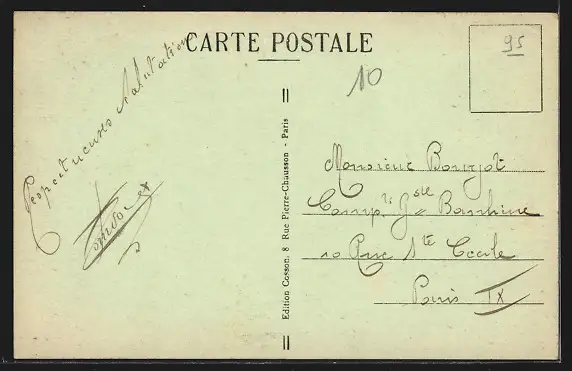 CARTE POSTALE
95
10
Respectueuses Salutations
Edition Cosson, 8 Rue Pierre-Chausson - Paris
Monsieur Bourjot
Comp.
10 Rue Ste Cecile
Paris IX